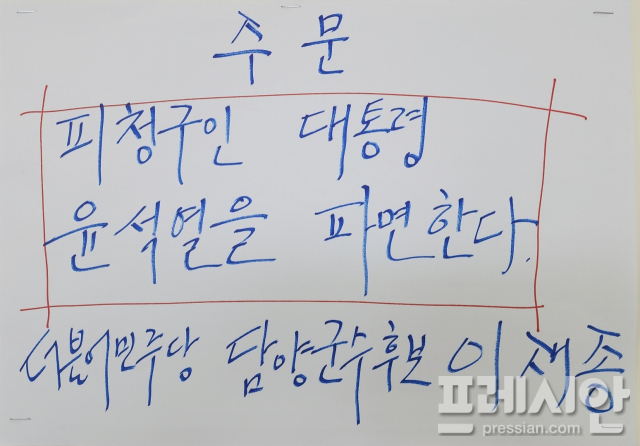 주문
피청구인 대통령
윤석열을 파면한다.
더불어민주당 담양군수후보 이재종
프레시안
pressian.com